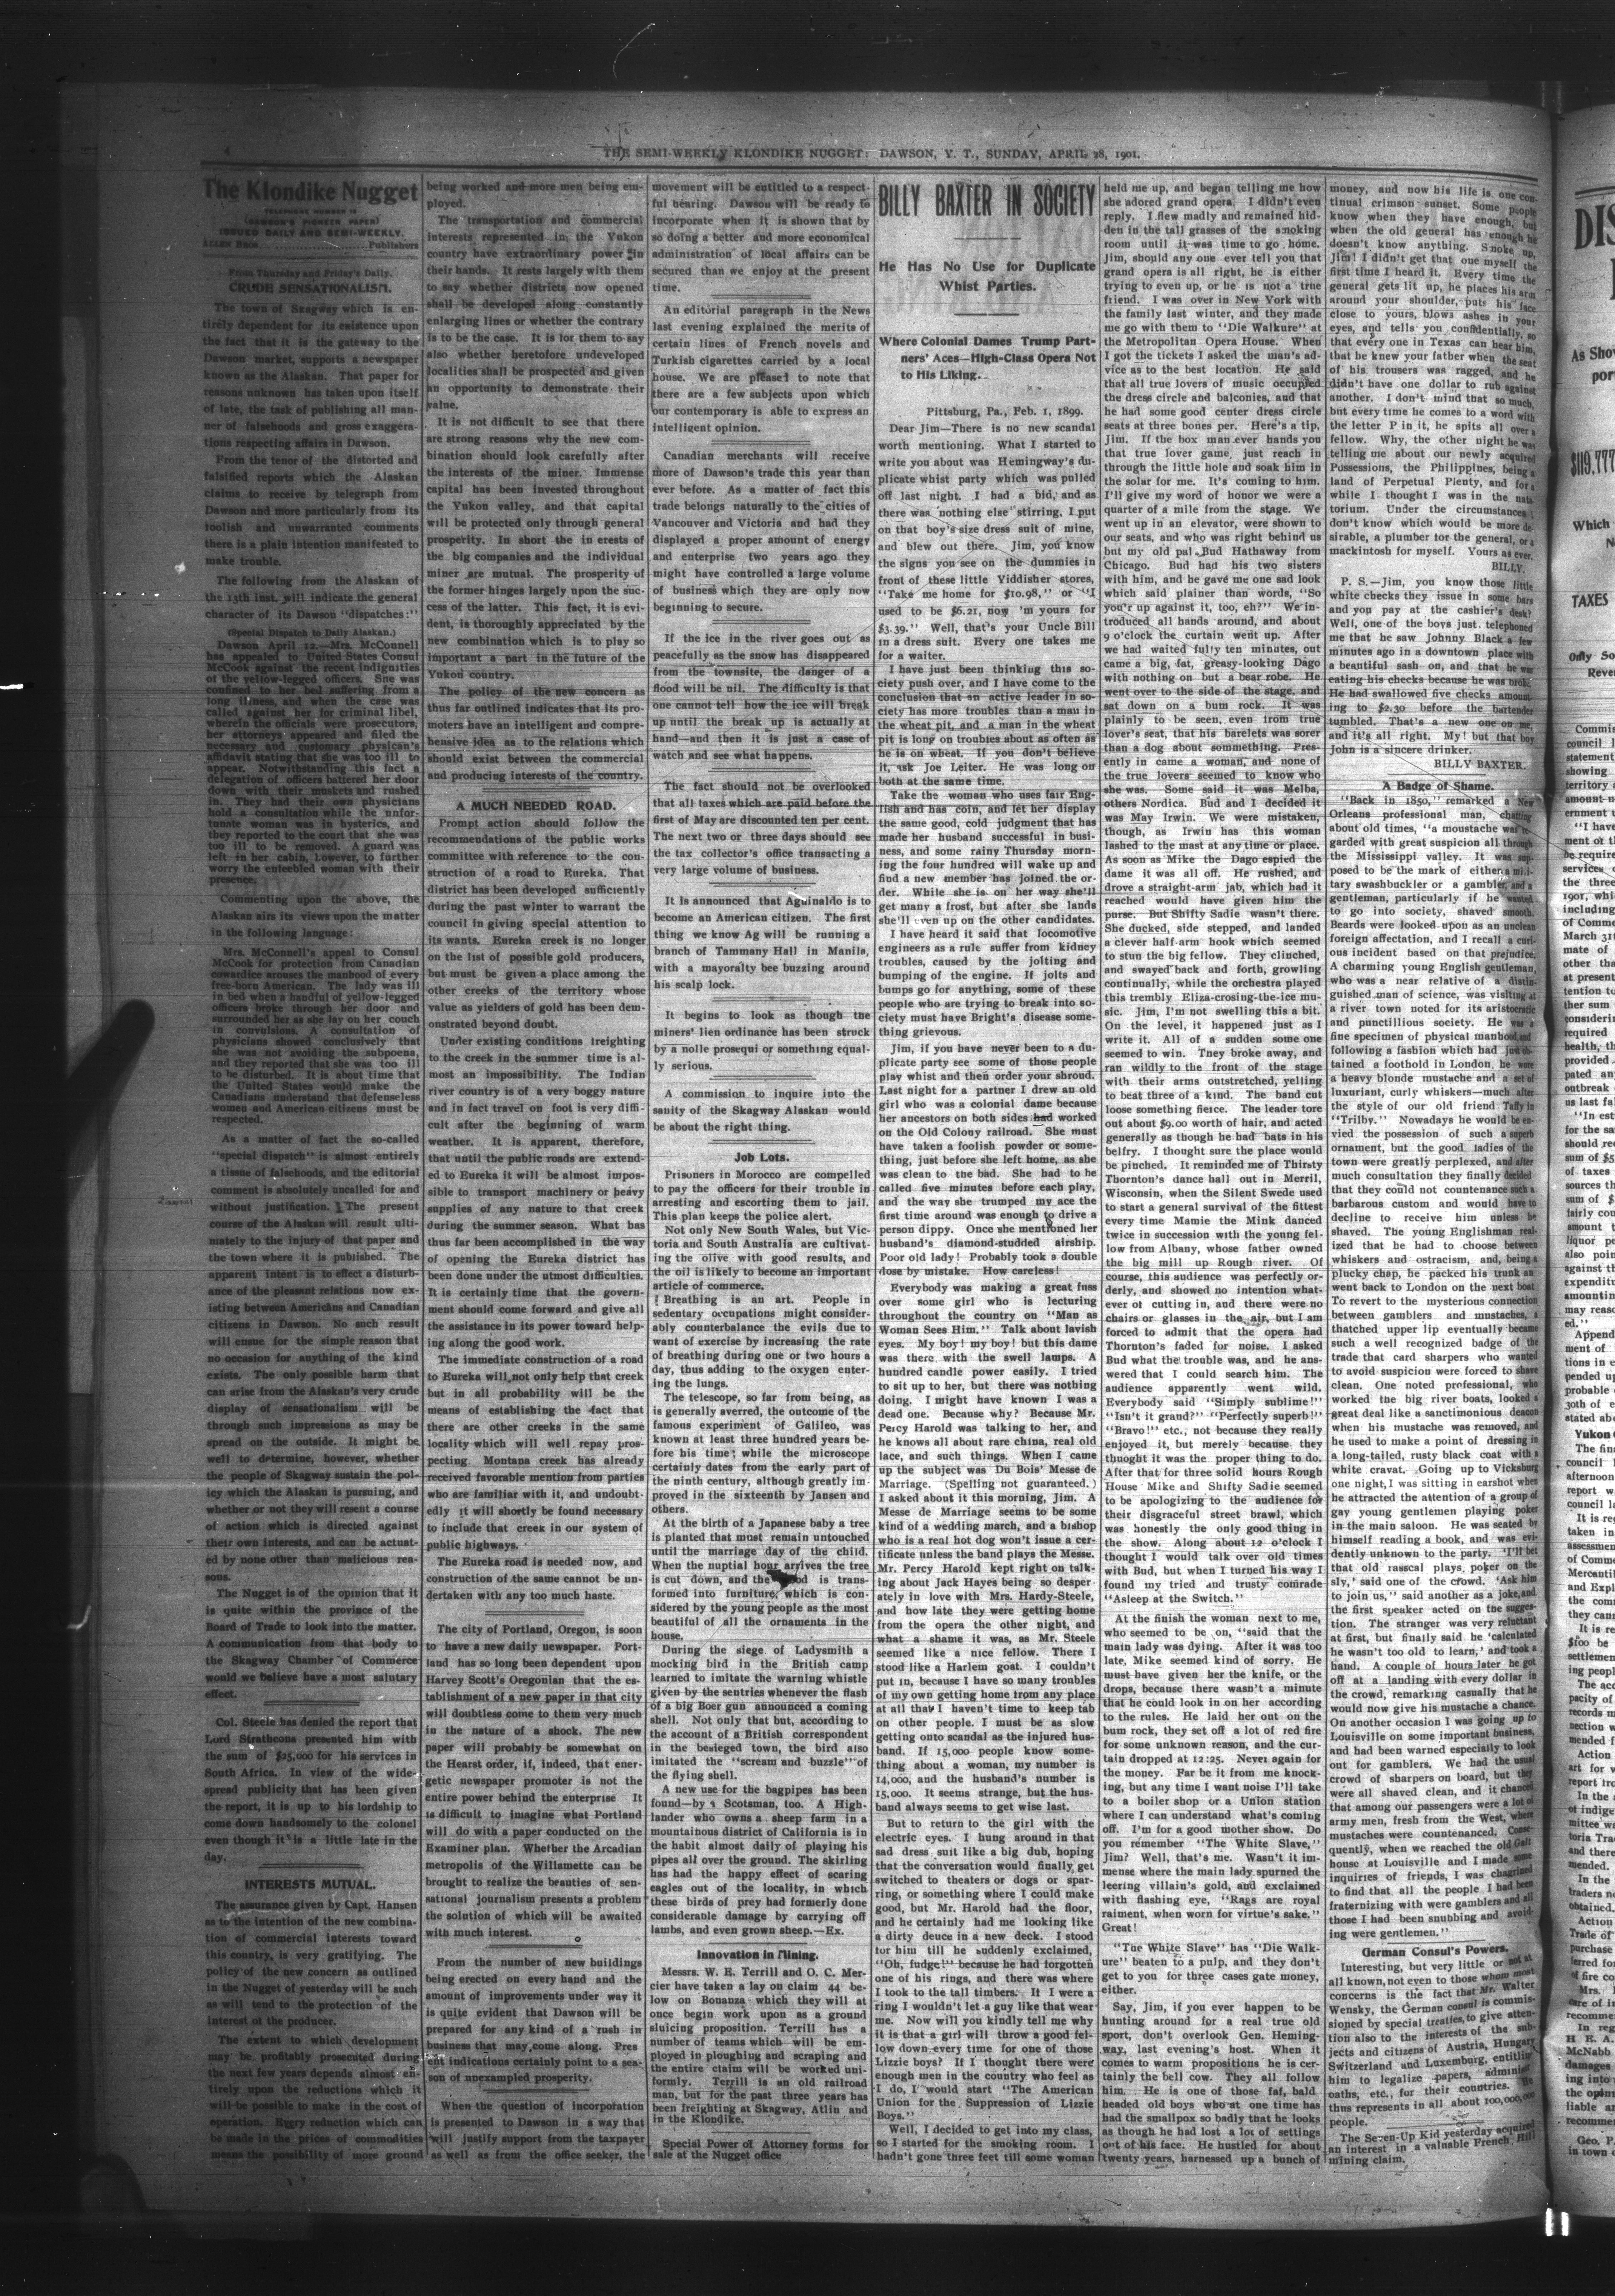 THE SEMI-WEEKLY KLONDIKE NUGGET: DAWSON, Y. T., SUNDAY, APRIL 28, 1901.
The Klondike Nugget
TELEPHONE NUMBER 12
(DAWSON'S PIONEER PAPER)
ISSUED DAILY AND SEMI-WEEKLY.
ALLEN BROS. .......... Publishers
From Thursday and Friday's Daily.
CRUDE SENSATIONALISM.
The town of Skagway which is en-
tirely dependent for its existence upon
the fact that it is the gateway to the
Dawson market, supports a newspaper
known as the Alaskan. That paper for
reasons unknown has taken upon itself
of late, the task of publishing all man-
ner of falsehoods and gross exaggera-
tions respecting affairs in Dawson.
From the tenor of the distorted and
falsified reports which the Alaskan
claims to receive by telegraph from
Dawson and more particularly from its
foolish and unwarranted comments
there is a plain intention manifested to
make trouble.
The following from the Alaskan of
the 13th inst. will indicate the general
character of its Dawson "dispatches:"
(Special Dispatch to Daily Alaskan.)
Dawson April 12.—Mrs. McConnell
has appealed to United States Consul
McCook against the recent indignities
of the yellow-legged officers. She was
confined to her bed suffering from a
long illness, and when the case was
called against her for criminal libel,
wherein the officials were prosecutors,
her attorneys appeared and filed the
necessary and customary physican's
affidavit stating that she was too ill to
appear. Notwithstanding this fact a
delegation of officers battered her door
down with their muskets and rushed
in. They had their own physicians
hold a consultation while the unfor-
tunate woman was in hysterics, and
they reported to the court that she was
too ill to be removed. A guard was
left in her cabin, however, to further
worry the enfeebled woman with their
presence.
Commenting upon the above, the
Alaskan airs its views upon the matter
in the following language:
Mrs. McConnell's appeal to Consul
McCook for protection from Canadian
cowardice arouses the manhood of every
free-born American. The lady was ill
in bed when a handful of yellow-legged
officers broke through her door and
surrounded her as she lay on her couch
in convulsions. A consultation of
physicians showed conclusively that
she was not avoiding the subpoena,
and they reported that she was too ill
to be disturbed. It is about time that
the United States would make the
Canadians understand that defenseless
women and American citizens must be
respected.
As a matter of fact the so-called
"special dispatch" is almost entirely
a tissue of falsehoods, and the editorial
comment is absolutely uncalled for and
without justification. The present
course of the Alaskan will result ulti-
mately to the injury of that paper and
the town where it is published. The
apparent intent is to effect a disturb-
ance of the pleasant relations now ex-
isting between Americans and Canadian
citizens in Dawson. No such result
will ensue for the simple reason that
no occasion for anything of the kind
exists. The only possible harm that
can arise from the Alaskan's very crude
display of sensationalism will be
through such impressions as may be
spread on the outside. It might be
well to determine, however, whether
the people of Skagway sustain the pol-
icy which the Alaskan is pursuing, and
whether or not they will resent a course
of action which is directed against
their own interests, and can be actuat-
ed by none other than malicious rea-
sons.
The Nugget is of the opinion that it
is quite within the province of the
Board of Trade to look into the matter.
A communication from that body to
the Skagway Chamber of Commerce
would we believe have a most salutary
effect.
Col. Steele has denied the report that
Lord Strathcona presented him with
the sum of $25,000 for his services in
South Africa. In view of the wide-
spread publicity that has been given
the report, it is up to his lordship to
come down handsomely to the colonel
even though it is a little late in the
day.
INTERESTS MUTUAL.
The assurance given by Capt. Hansen
as to the intention of the new combina-
tion of commercial interests toward
this country, is very gratifying. The
policy of the new concern as outlined
in the Nugget of yesterday will be such
as will tend to the protection of the
interest of the producer.
The extent to which development
may be profitably prosecuted during
the next few years depends almost en-
tirely upon the reductions which it
will be possible to make in the cost of
operation. Every reduction which can
be made in the prices of commodities
means the possibility of more ground
being worked and more men being em-
ployed.
The transportation and commercial
interests represented in the Yukon
country have extraordinary power in
their hands. It rests largely with them
to say whether districts now opened
shall be developed along constantly
enlarging lines or whether the contrary
is to be the case. It is for them to say
also whether heretofore undeveloped
localities shall be prospected and given
an opportunity to demonstrate their
value.
It is not difficult to see that there
are strong reasons why the new com-
bination should look carefully after
the interests of the miner. Immense
capital has been invested throughout
the Yukon valley, and that capital
will be protected only through general
prosperity. In short the in erests of
the big companies and the individual
miner are mutual. The prosperity of
the former hinges largely upon the suc-
cess of the latter. This fact, it is evi-
dent, is thoroughly appreciated by the
new combination which is to play so
important a part in the future of the
Yukon country.
The policy of the new concern as
thus far outlined indicates that its pro-
moters have an intelligent and compre-
hensive idea as to the relations which
should exist between the commercial
and producing interests of the country.
A MUCH NEEDED ROAD.
Prompt action should follow the
recommendations of the public works
committee with reference to the con-
struction of a road to Eureka. That
district has been developed sufficiently
during the past winter to warrant the
council in giving special attention to
its wants. Eureka creek is no longer
on the list of possible gold producers,
but must be given a place among the
other creeks of the territory whose
value as yielders of gold has been dem-
onstrated beyond doubt.
Under existing conditions freighting
to the creek in the summer time is al-
most an impossibility. The Indian
river country is of a very boggy nature
and in fact travel on foot is very diffi-
cult after the beginning of warm
weather. It is apparent, therefore,
that until the public roads are extend-
ed to Eureka it will be almost impos-
sible to transport machinery or heavy
supplies of any nature to that creek
during the summer season. What has
thus far been accomplished in the way
of opening the Eureka district has
been done under the utmost difficulties.
It is certainly time that the govern-
ment should come forward and give all
the assistance in its power toward help-
ing along the good work.
The immediate construction of a road
to Eureka will not only help that creek
but in all probability will be the
means of establishing the fact that
there are other creeks in the same
locality which will well repay pros-
pecting. Montana creek has already
received favorable mention from parties
who are familiar with it, and undoubt-
edly it will shortly be found necessary
to include that creek in our system of
public highways.
The Eureka road is needed now, and
construction of the same cannot be un-
dertaken with any too much haste.
The city of Portland, Oregon, is soon
to have a new daily newspaper. Port-
land has so long been dependent upon
Harvey Scott's Oregonian that the es-
tablishment of a new paper in that city
will doubtless come to them very much
in the nature of a shock. The new
paper will probably be somewhat on
the Hearst order, if, indeed, that ener-
getic newspaper promoter is not the
entire power behind the enterprise It
is difficult to imagine what Portland
will do with a paper conducted on the
Examiner plan. Whether the Arcadian
metropolis of the Willamette can be
brought to realize the beauties of sen-
sational journalism presents a problem
the solution of which will be awaited
with much interest.
From the number of new buildings
being erected on every hand and the
amount of improvements under way it
is quite evident that Dawson will be
prepared for any kind of a rush in
business that may come along. Pres
ent indications certainly point to a sea-
son of unexampled prosperity.
When the question of incorporation
is presented to Dawson in a way that
will justify support from the taxpayer
as well as from the office seeker, the
movement will be entitled to a respect-
ful hearing. Dawson will be ready to
incorporate when it is shown that by
so doing a better and more economical
administration of local affairs can be
secured than we enjoy at the present
time.
An editorial paragraph in the News
last evening explained the merits of
certain lines of French novels and
Turkish cigarettes carried by a local
house. We are pleased to note that
there are a few subjects upon which
our contemporary is able to express an
intelligent opinion.
Canadian merchants will receive
more of Dawson's trade this year than
ever before. As a matter of fact this
trade belongs naturally to the cities of
Vancouver and Victoria and had they
displayed a proper amount of energy
and enterprise two years ago they
might have controlled a large volume
of business which they are only now
beginning to secure.
If the ice in the river goes out as
peacefully as the snow has disappeared
from the townsite, the danger of a
flood will be nil. The difficulty is that
one cannot tell how the ice will break
up until the break up is actually at
hand—and then it is just a case of
watch and see what happens.
The fact should not be overlooked
that all taxes which are paid before the
first of May are discounted ten per cent.
The next two or three days should see
the tax collector's office transacting a
very large volume of business.
It is announced that Aguinaldo is to
become an American citizen. The first
thing we know Ag will be running a
branch of Tammany Hall in Manila,
with a mayoralty bee buzzing around
his scalp lock.
It begins to look as though the
miners' lien ordinance has been struck
by a nolle prosequi or something equal-
ly serious.
A commission to inquire into the
sanity of the Skagway Alaskan would
be about the right thing.
Job Lots.
Prisoners in Morocco are compelled
to pay the officers for their trouble in
arresting and escorting them to jail.
This plan keeps the police alert.
Not only New South Wales, but Vic-
toria and South Australia are cultivat-
ing the olive with good results, and
the oil is likely to become an important
article of commerce.
Breathing is an art. People in
sedentary occupations might consider-
ably counterbalance the evils due to
want of exercise by increasing the rate
of breathing during one or two hours a
day, thus adding to the oxygen enter-
ing the lungs.
The telescope, so far from being, as
is generally averred, the outcome of the
famous experiment of Galileo, was
known at least three hundred years be-
fore his time; while the microscope
certainly dates from the early part of
the ninth century, although greatly im-
proved in the sixteenth by Jansen and
others.
At the birth of a Japanese baby a tree
is planted that must remain untouched
until the marriage day of the child.
When the nuptial hour arrives the tree
is cut down, and the is trans-
formed into furniture, which is con-
sidered by the young people as the most
beautiful of all the ornaments in the
house.
During the siege of Ladysmith a
mocking bird in the British camp
learned to imitate the warning whistle
given by the sentries whenever the flash
of a big Boer gun announced a coming
shell. Not only that but, according to
the account of a British correspondent
in the besieged town, the bird also
imitated the "scream and buzzle" of
the flying shell.
A new use for the bagpipes has been
found—by a Scotsman, too. A High-
lander who owns a sheep farm in a
mountainous district of California is in
the habit almost daily of playing his
pipes all over the ground. The skirling
has had the happy effect of scaring
eagles out of the locality, in which
these birds of prey had formerly done
considerable damage by carrying off
lambs, and even grown sheep.—Ex.
Innovation in Mining.
Messrs. W. E. Terrill and O. C. Mer-
cier have taken a lay on claim 44 be-
low on Bonanza which they will at
once begin work upon as a ground
sluicing proposition. Terrill has a
number of teams which will be em-
ployed in ploughing and scraping and
the entire claim will be worked uni-
formly. Terrill is an old railroad
man, but for the past three years has
been freighting at Skagway, Atlin and
in the Klondike.
Special Power of Attorney forms for
sale at the Nugget office
BILLY BAXTER IN SOCIETY
He Has No Use for Duplicate
Whist Parties.
Where Colonial Dames Trump Part-
ners' Aces—High-Class Opera Not
to His Liking.
Pittsburg, Pa., Feb. 1, 1899.
Dear Jim—There is no new scandal
worth mentioning. What I started to
write you about was Hemingway's du-
plicate whist party which was pulled
off last night. I had a bid, and as
there was nothing else stirring, I put
on that boy's size dress suit of mine,
and blew out there. Jim, you know
the signs you see on the dummies in
front of these little Yiddisher stores,
"Take me home for $10.98," or "I
used to be $6.21, now 'm yours for
$3.39." Well, that's your Uncle Bill
in a dress suit. Every one takes me
for a waiter.
I have just been thinking this so-
ciety push over, and I have come to the
conclusion that an active leader in so-
ciety has more troubles than a man in
the wheat pit, and a man in the wheat
pit is long on troubles about as often as
he is on wheat. If you don't believe
it, ask Joe Leiter. He was long on
both at the same time.
Take the woman who uses fair Eng-
lish and has coin, and let her display
the same good, cold judgment that has
made her husband successful in busi-
ness, and some rainy Thursday morn-
ing the four hundred will wake up and
find a new member has joined the or-
der. While she is on her way she'll
get many a frost, but after she lands
she'll even up on the other candidates.
I have heard it said that locomotive
engineers as a rule suffer from kidney
troubles, caused by the jolting and
bumping of the engine. If jolts and
bumps go for anything, some of these
people who are trying to break into so-
ciety must have Bright's disease some-
thing grievous.
Jim, if you have never been to a du-
plicate party see some of those people
play whist and then order your shroud.
Last night for a partner I drew an old
girl who was a colonial dame because
her ancestors on both sides had worked
on the Old Colony railroad. She must
have taken a foolish powder or some-
thing, just before she left home, as she
was clean to the bad. She had to be
called five minutes before each play,
and the way she trumped my ace the
first time around was enough to drive a
person dippy. Once she mentioned her
husband's diamond-studded airship.
Poor old lady! Probably took a double
dose by mistake. How careless!
Everybody was making a great fuss
over some girl who is lecturing
throughout the country on "Man as
Woman Sees Him." Talk about lavish
eyes. My boy! my boy! but this dame
was there with the swell lamps. A
hundred candle power easily. I tried
to sit up to her, but there was nothing
doing. I might have known I was a
dead one. Because why? Because Mr.
Percy Harold was talking to her, and
he knows all about rare china, real old
lace, and such things. When I came
up the subject was Du Bois' Messe de
Marriage. (Spelling not guaranteed.)
I asked about it this morning, Jim. A
Messe de Marriage seems to be some
kind of a wedding march, and a bishop
who is a real hot dog won't issue a cer-
tificate unless the band plays the Messe.
Mr. Percy Harold kept right on talk-
ing about Jack Hayes being so desper
ately in love with Mrs. Hardy-Steele,
and how late they were getting home
from the opera the other night, and
what a shame it was, as Mr. Steele
seemed like a nice fellow. There I
stood like a Harlem goat. I couldn't
put in, because I have so many troubles
of my own getting home from any place
at all that I haven't time to keep tab
on other people. I must be as slow
getting onto scandal as the injured hus-
band. If 15,000 people know some-
thing about a woman, my number is
14,000, and the husband's number is
15,000. It seems strange, but the hus-
band always seems to get wise last.
But to return to the girl with the
electric eyes. I hung around in that
sad dress suit like a big dub, hoping
that the conversation would finally get
switched to theaters or dogs or spar-
ring, or something where I could make
good, but Mr. Harold had the floor,
and he certainly had me looking like
a dirty deuce in a new deck. I stood
for him till he suddenly exclaimed,
"Oh, fudge!" because he had forgotten
one of his rings, and there was where
I took to the tall timbers. If I were a
ring I wouldn't let a guy like that wear
me. Now will you kindly tell me why
it is that a girl will throw a good fel-
low down every time for one of those
Lizzie boys? If I thought there were
enough men in the country who feel as
I do, I would start "The American
Union for the Suppression of Lizzie
Boys."
Well, I decided to get into my class,
so I started for the smoking room. I
hadn't gone three feet till some woman
held me up, and began telling me how
she adored grand opera. I didn't even
reply. I flew madly and remained hid-
den in the tall grasses of the smoking
room until it was time to go home.
Jim, should any one ever tell you that
grand opera is all right, he is either
trying to even up, or he is not a true
friend. I was over in New York with
the family last winter, and they made
me go with them to "Die Walkure" at
the Metropolitan Opera House. When
I got the tickets I asked the man's ad-
vice as to the best location. He said
that all true lovers of music occupied
the dress circle and balconies, and that
he had some good center dress circle
seats at three bones per. Here's a tip,
Jim. If the box man ever hands you
that true lover game, just reach in
through the little hole and soak him in
the solar for me. It's coming to him.
I'll give my word of honor we were a
quarter of a mile from the stage. We
went up in an elevator, were shown to
our seats, and who was right behind us
but my old pal Bud Hathaway from
Chicago. Bud had his two sisters
with him, and he gave me one sad look
which said plainer than words, "So
you'r up against it, too, eh?" We in-
troduced all hands around, and about
9 o'clock the curtain went up. After
we had waited fully ten minutes, out
came a big, fat, greasy-looking Dago
with nothing on but a bear robe. He
went over to the side of the stage, and
sat down on a bum rock. It was
plainly to be seen, even from true
lover's seat, that his barelets was sorer
than a dog about sommething. Pres-
ently in came a woman, and none of
the true lovers seemed to know who
she was. Some said it was Melba,
others Nordica. Bud and I decided it
was May Irwin. We were mistaken,
though, as Irwin has this woman
lashed to the mast at any time or place.
As soon as Mike the Dago espied the
dame it was all off. He rushed, and
drove a straight-arm jab, which had it
reached would have given him the
purse. But Shifty Sadie wasn't there.
She ducked, side stepped, and landed
a clever half-arm hook which seemed
to stun the big fellow. They clinched,
and swayed back and forth, growling
continually, while the orchestra played
this trembly Eliza-crossing-the-ice mu-
sic. Jim, I'm not swelling this a bit.
On the level, it happened just as I
write it. All of a sudden some one
seemed to win. Tney broke away, and
ran wildly to the front of the stage
with their arms outstretched, yelling
to beat three of a kind. The band cut
loose something fierce. The leader tore
out about $9.00 worth of hair, and acted
generally as though he had bats in his
belfry. I thought sure the place would
be pinched. It reminded me of Thirsty
Thornton's dance hall out in Merril,
Wisconsin, when the Silent Swede used
to start a general survival of the fittest
every time Mamie the Mink danced
twice in succession with the young fel-
low from Albany, whose father owned
the big mill up Rough river. Of
course, this audience was perfectly or-
derly, and showed no intention what-
ever of cutting in, and there were no
chairs or glasses in the air, but I am
forced to admit that the opera had
Thornton's faded for noise. I asked
Bud what the trouble was, and he ans-
wered that I could search him. The
audience apparently went wild.
Everybody said "Simply sublime!"
"Isn't it grand?" "Perfectly superb!"
"Bravo!" etc., not because they really
enjoyed it, but merely because they
thuoght it was the proper thing to do.
After that for three solid hours Rough
House Mike and Shifty Sadie seemed
to be apologizing to the audience for
their disgraceful street brawl, which
was honestly the only good thing in
the show. Along about 12 o'clock I
thought I would talk over old times
with Bud, but when I turned his way I
found my tried and trusty comrade
"Asleep at the Switch."
At the finish the woman next to me,
who seemed to be on, "said that the
main lady was dying. After it was too
late, Mike seemed kind of sorry. He
must have given her the knife, or the
drops, because there wasn't a minute
that he could look in on her according
to the rules. He laid her out on the
bum rock, they set off a lot of red fire
for some unknown reason, and the cur-
tain dropped at 12:25. Never again for
the money. Far be it from me knock-
ing, but any time I want noise I'll take
to a boiler shop or a Union station
where I can understand what's coming
off. I'm for a good mother show. Do
you remember "The White Slave,"
Jim? Well, that's me. Wasn't it im-
mense where the main lady spurned the
leering villain's gold, and exclaimed
with flashing eye, "Rags are royal
raiment, when worn for virtue's sake."
Great!
"The White Slave" has "Die Walk-
ure" beaten to a pulp, and they don't
get to you for three cases gate money,
either.
Say, Jim, if you ever happen to be
hunting around for a real true old
sport, don't overlook Gen. Heming-
way, last evening's host. When it
comes to warm propositions he is cer-
tainly the bell cow. They all follow
him. He is one of those fat, bald
headed old boys who at one time has
had the smallpox so badly that he looks
as though he had lost a lot of settings
out of his face. He hustled for about
twenty years, harnessed up a bunch of
money, and now his life is one con-
tinual crimson sunset. Some people
know when they have enough, but
when the old general has enough he
doesn't know anything. Smoke up,
Jim! I didn't get that one myself the
first time I heard it. Every time the
general gets lit up, he places his arm
around your shoulder, puts his face
close to yours, blows ashes in your
eyes, and tells you confidentially, so
that every one in Texas can hear him,
that he knew your father when the seat
of his trousers was ragged, and he
didn't have one dollar to rub against
another. I don't mind that so much,
but every time he comes to a word with
the letter P in it, he spits all over a
fellow. Why, the other night he was
telling me about our newly acquired
Possessions, the Philippines, being a
land of Perpetual Plenty, and for a
while I thought I was in the nata
torium. Under the circumstances I
don't know which would be more de-
sirable, a plumber for the general, or a
mackintosh for myself. Yours as ever,
BILLY.
P. S.—Jim, you know those little
white checks they issue in some bars
and you pay at the cashier's desk?
Well, one of the boys just telephoned
me that he saw Johnny Black a few
minutes ago in a downtown place with
a beautiful sash on, and that he was
eating his checks because he was broke.
He had swallowed five checks amount-
ing to $2.30 before the bartender
tumbled. That's a new one on me,
and it's all right. My! but that boy
John is a sincere drinker.
BILLY BAXTER.
A Badge of Shame.
"Back in 1850," remarked a New
Orleans professional man, chatting
about old times, "a moustache was re-
garded with great suspicion all through
the Mississippi valley. It was sup-
posed to be the mark of either a mili-
tary swashbuckler or a gambler, and a
gentleman, particularly if he wanted
to go into society, shaved smooth.
Beards were looked upon as an unclean
foreign affectation, and I recall a curi-
ous incident based on that prejudice.
A charming young English gentleman,
who was a near relative of a distin-
guished man of science, was visiting at
a river town noted for its aristocratic
and punctilious society. He was a
fine specimen of physical manhood, and
following a fashion which had just ob-
tained a foothold in London, he wore
a heavy blonde mustache and a set of
luxuriant, curly whiskers—much after
the style of our old friend Taffy in
"Trilby." Nowadays he would be en-
vied the possession of such a superb
ornament, but the good ladies of the
town were greatly perplexed, and after
much consultation they finally decided
that they could not countenance such a
barbarous custom and would have to
decline to receive him unless he
shaved. The young Englishman real-
ized that he had to choose between
whiskers and ostracism, and, being a
plucky chap, he packed his trunk an
went back to London on the next boat
To revert to the mysterious connection
between gamblers and mustaches, a
thatched upper lip eventually became
such a well recognized badge of the
trade that card sharpers who wanted
to avoid suspicion were forced to shave
clean. One noted professional, who
worked the big river boats, looked a
great deal like a sanctimonious deacon
when his mustache was removed, and
he used to make a point of dressing in
a long-tailed, rusty black coat with a
white cravat. Going up to Vicksburg
one night, I was sitting in earshot when
he attracted the attention of a group of
gay young gentlemen playing poker
in the main saloon. He was seated by
himself reading a book, and was evi-
dently unknown to the party. 'I'll bet
that old rascal plays poker on the
sly,' said one of the crowd. 'Ask him
to join us,' said another as a joke, and
the first speaker acted on the sugges-
tion. The stranger was very reluctant
at first, but finally said he 'calculated
he wasn't too old to learn,' and took a
hand. A couple of hours later he got
off at a landing with every dollar in
the crowd, remarking casually that he
would now give his mustache a chance.
On another occasion I was going up to
Louisville on some important business,
and had been warned especially to look
out for gamblers. We had the usual
crowd of sharpers on board, but they
were all shaved clean, and it chanced
that among our passengers were a lot of
army men, fresh from the West, where
mustaches were countenanced. Conse-
quently, when we reached the old Galt
house at Louisville and I made some
inquiries of friends, I was chagrined
to find that all the people I had been
fraternizing with were gamblers and all
those I had been snubbing and avoid-
ing were gentlemen."
German Consul's Powers.
Interesting, but very little or not at
all known, not even to those whom most
concerns is the fact that Mr. Walter
Wensky, the German consul is commis-
sioned by special treaties, to give atten-
tion also to the interests of the sub-
jects and citizens of Austria, Hungary
Switzerland and Luxemburg, entitling
him to legalize papers, administer
oaths, etc., for their countries. He
thus represents in all about 100,000,000
people.
The Seven-Up Kid yesterday acquired
an interest in a valnable French Hill
mining claim.